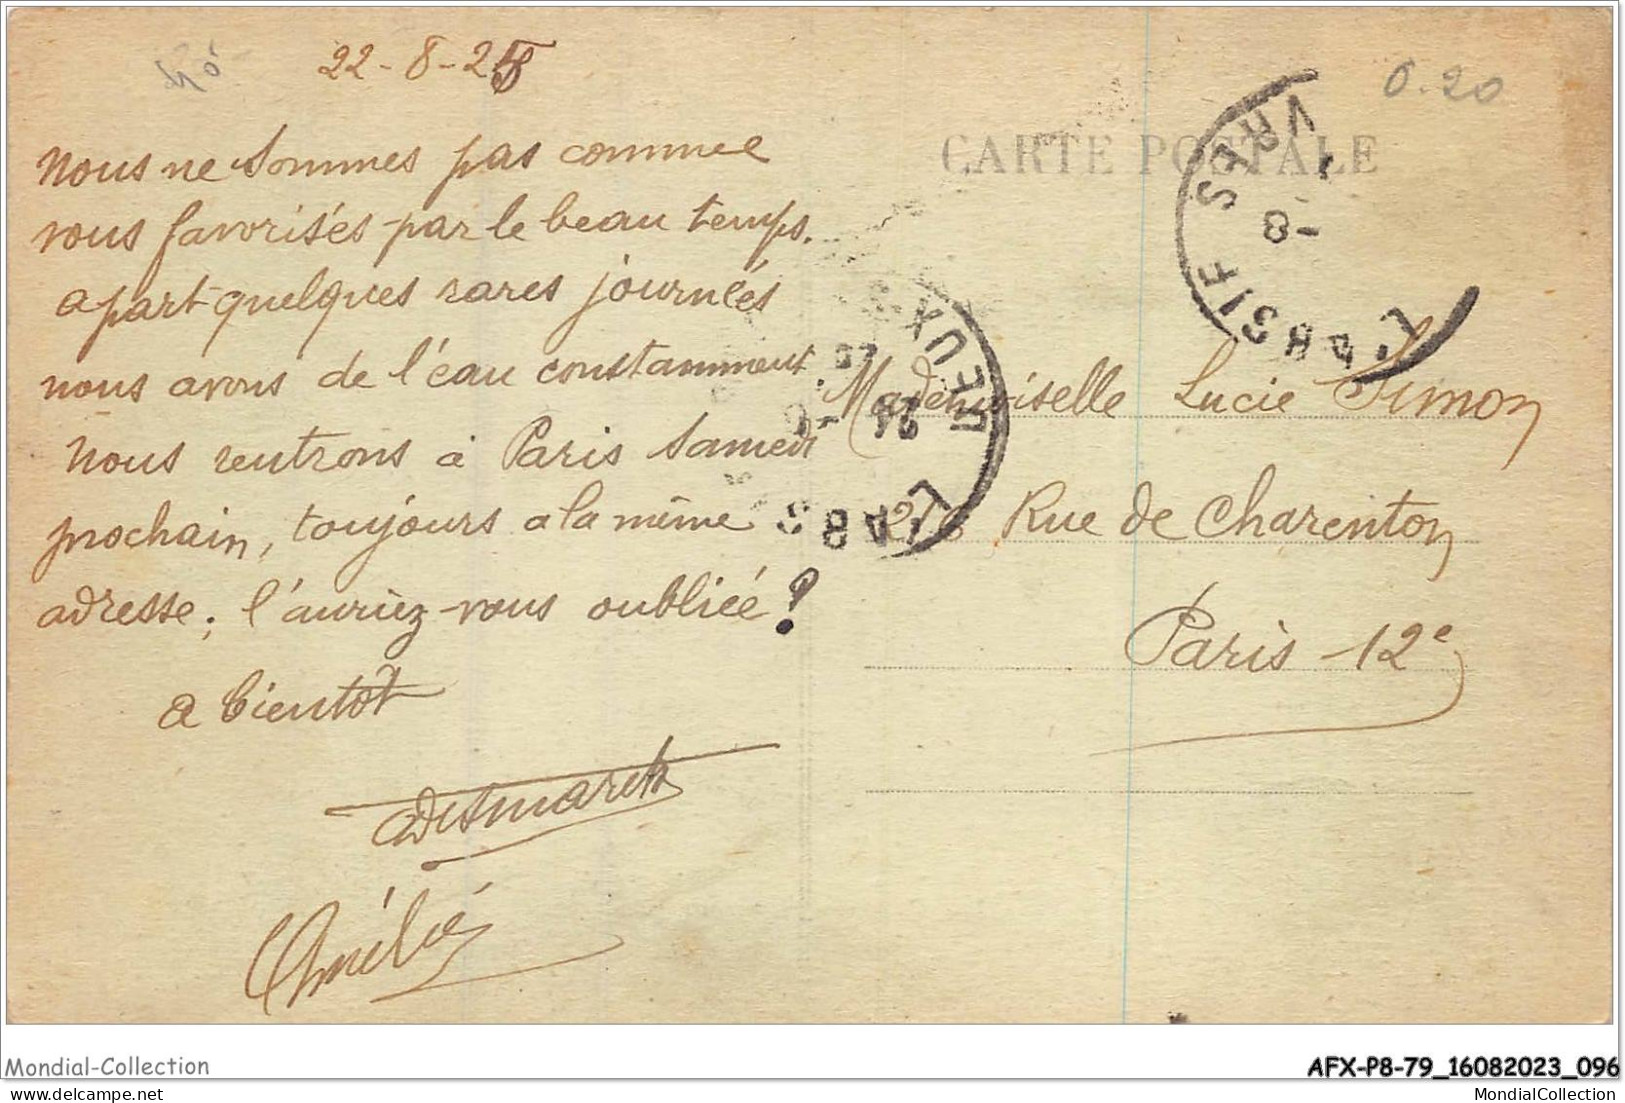 22-8-25
0.20
CARTE POSTALE
nous ne sommes pas comme
vous favorisés par le beau temps.
a part quelques rares journées
nous avons de l'eau constamment.
nous rentrons à Paris samedi
prochain, toujours a la même
adresse; l'auriez-vous oubliée!
a bientôt
Desmarets
Amélie
Mademoiselle Lucie Simon
Rue de Charenton
Paris -12e
L'ABSIE
8-
24
L'ABS
Mondial-Collection
AFX-P8-79_16082023_096
MondialCollection